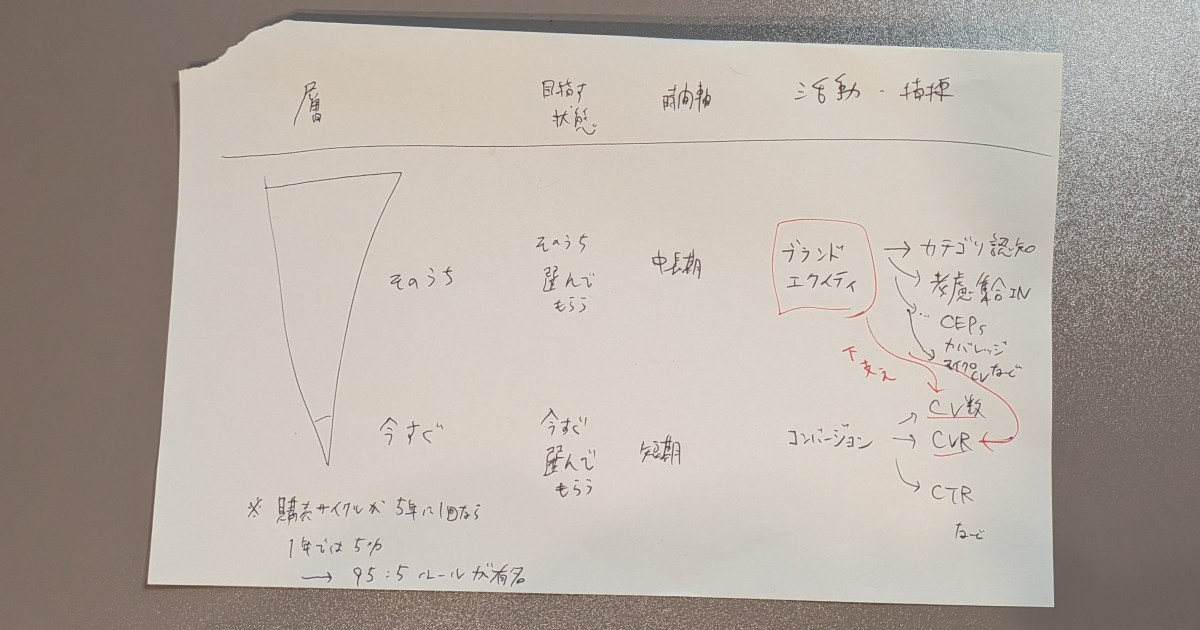 層
目指す
状態。
時間軸
活動・指標
そのうち
そのうち
選んで
もらう
中長期
ブランド
エクイティ
→ カテゴリ認知
考慮集合IN
… CEPs
カバレッジ
マイクロCVなど
下支え
今すぐ
今すぐ
選んで
もらう
短期
コンバージョン
CV数
→ CVR
CTR
など
※ 購売サイクルが 5年に1回なら
1年では 5%
→ 95:5 ルールが有名